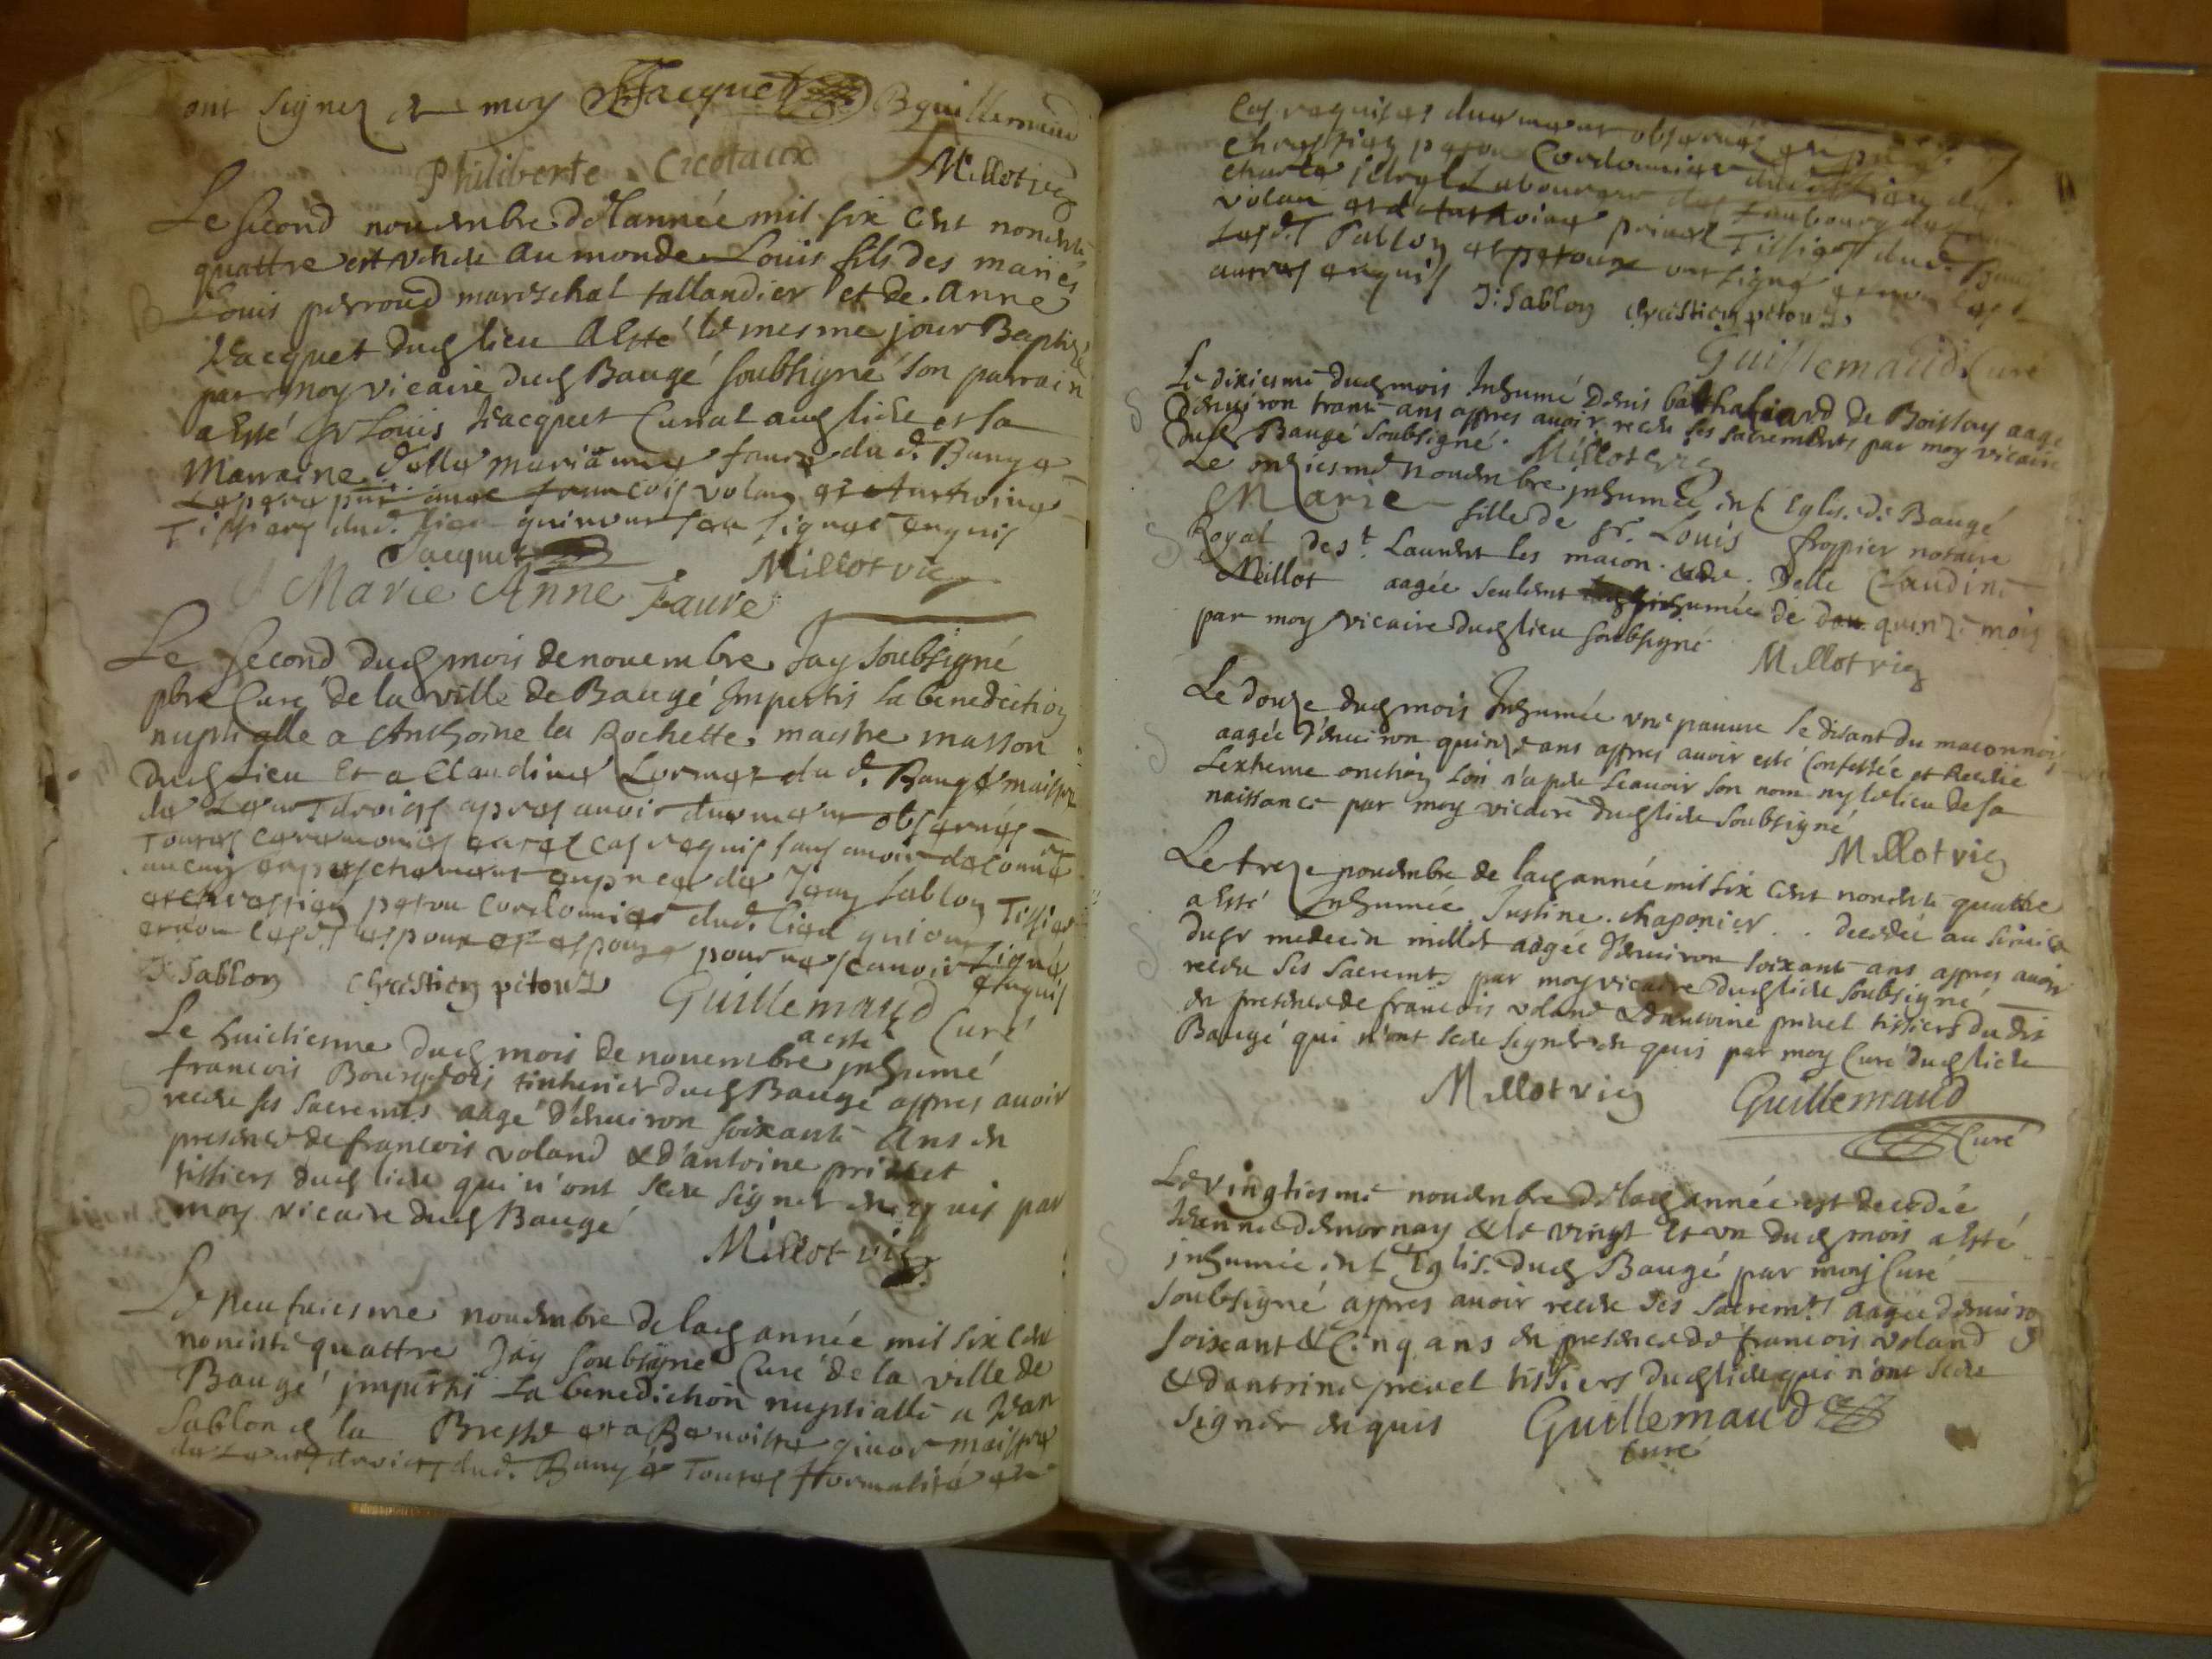 ont signez & moy Jacquet BGuillemaud
Philiberte Cicotaux Millot vic
Le second nouembre de lannéé mil six cent nonente
quattre est venu au monde Louis fils des mariés
Louis perroud mareschal tallandier et de Anne
Jacquet dud lieu a esté le mesme jour Baptizé
par moy vicaire dud Baugé soubsigné son parrain
a esté sr Louis Jacquet Curial aud lieu et sa
Marraine delle marianne faure dud. Bauge
francois volan et Anthoine
Tissiers dud. lieu qui nont sceu signer enquis
Jacquet Millot vic
Marie Anne Faure
Le second dud mois de nouembre Jay soubsigné
pbre Curé de la ville de Baugé Impertis la benediction
nuptialle a Anthoine la Rochette maistre masson
dud Lieu Et a Claudine dud. Baugé maistre
de Leurs droicts apres auoir duement obserués
Toutes ceremonies en tel cas requis sans auoir
aucun empeschement en pnce de Jean sablon Tissier
et chrestien petou cordonnier dud. lieu qui ont signé
et non lesd. espoux et espouze pour ne scauoir enquis
J: Sablon chrestien petouz
Guillemaud Curé
Le huictiesme dud mois de nouembre a esté inhumé
francois Bourgeois tinturier dud Baugé appres auoir
receu ses sacremts aagé d'enuiron soixante Ans en
presence de francois voland & d'antoine
tissiers dud lieu qui n'ont sceu signer enquis par
moy vicaire dud Baugé
Millot vic
Le neufuiesme nouembre de lad année mil six cent
nonente quattre Jay soubsigné Curé de la ville de
Baugé impertis La benediction nuptialle a Jean
sablon d la Bresse et a Benoiste maistre
de Leurs droicts dud. Baugé Toutes formalité en
Cas requises duement obserués en
Chrestien petou Cordonnier dud. Lieu
charle Laboureur des faubourg
volan et d'Anthoine priuel Tissiers dud. Baugé
Lesd. sablon et petoux ont signé et non les
autres enquis
J: sablon chrestien petouz
Guillemaud Curé
Le dixiesme dud mois Inhumé Denis de Boissay aagé
d'enuiron trante ans appres auoir receu ses sacrements par moy vicaire
dud Baugé soubsigné. Millot vic
Le onziesme nouembre inhumée en l Eglis. de Baugé
Marie fille de sr. Louis froppier notaire
Royal de st. Laurent les macon. & de. Delle Claudine
Millot aagée seulemt de quinze mois
par moy vicaire dud lieu soubsigné.
Millot vic
Le douze dud mois Inhumée vne pauure se disant du maconnois
aagée d'enuiron quinze ans appres auoir esté Confessée et Receue
Lextreme onction lon n'a peu scauoir son nom ny le lieu de sa
naissance par moy vicaire dud lieu soubsigné
Millot vic
Le treze nouembre de lad année mil six cent nonente quattre
a esté Inhumée Justine. chaponier . . decedée au seruice
du sr medecin millot aagée d'enuiron soixante ans appres auoir
receu ses sacremts par moy vicaire dud lieu soubsigné
en presence de francois voland & d'antoine priuel tissiers du dit
Baugé qui n'ont sceu signer en quis par moy Curé dud lieu
Millot vic Guillemaud
Curé
Le vingtiesme nouembre de lad année est decedée
Jeanne demornay & le vingt Et vn dud mois a esté
inhumée en l Eglis. dud Baugé par moy Curé
soubsigné appres auoir receu ses sacremts aagée d'enuiron
soixante & Cinq ans en presence de francois voland
& dantoine preuel tissiers dud lieu qui n'ont sceu
signer en quis Guillemaud
Curé